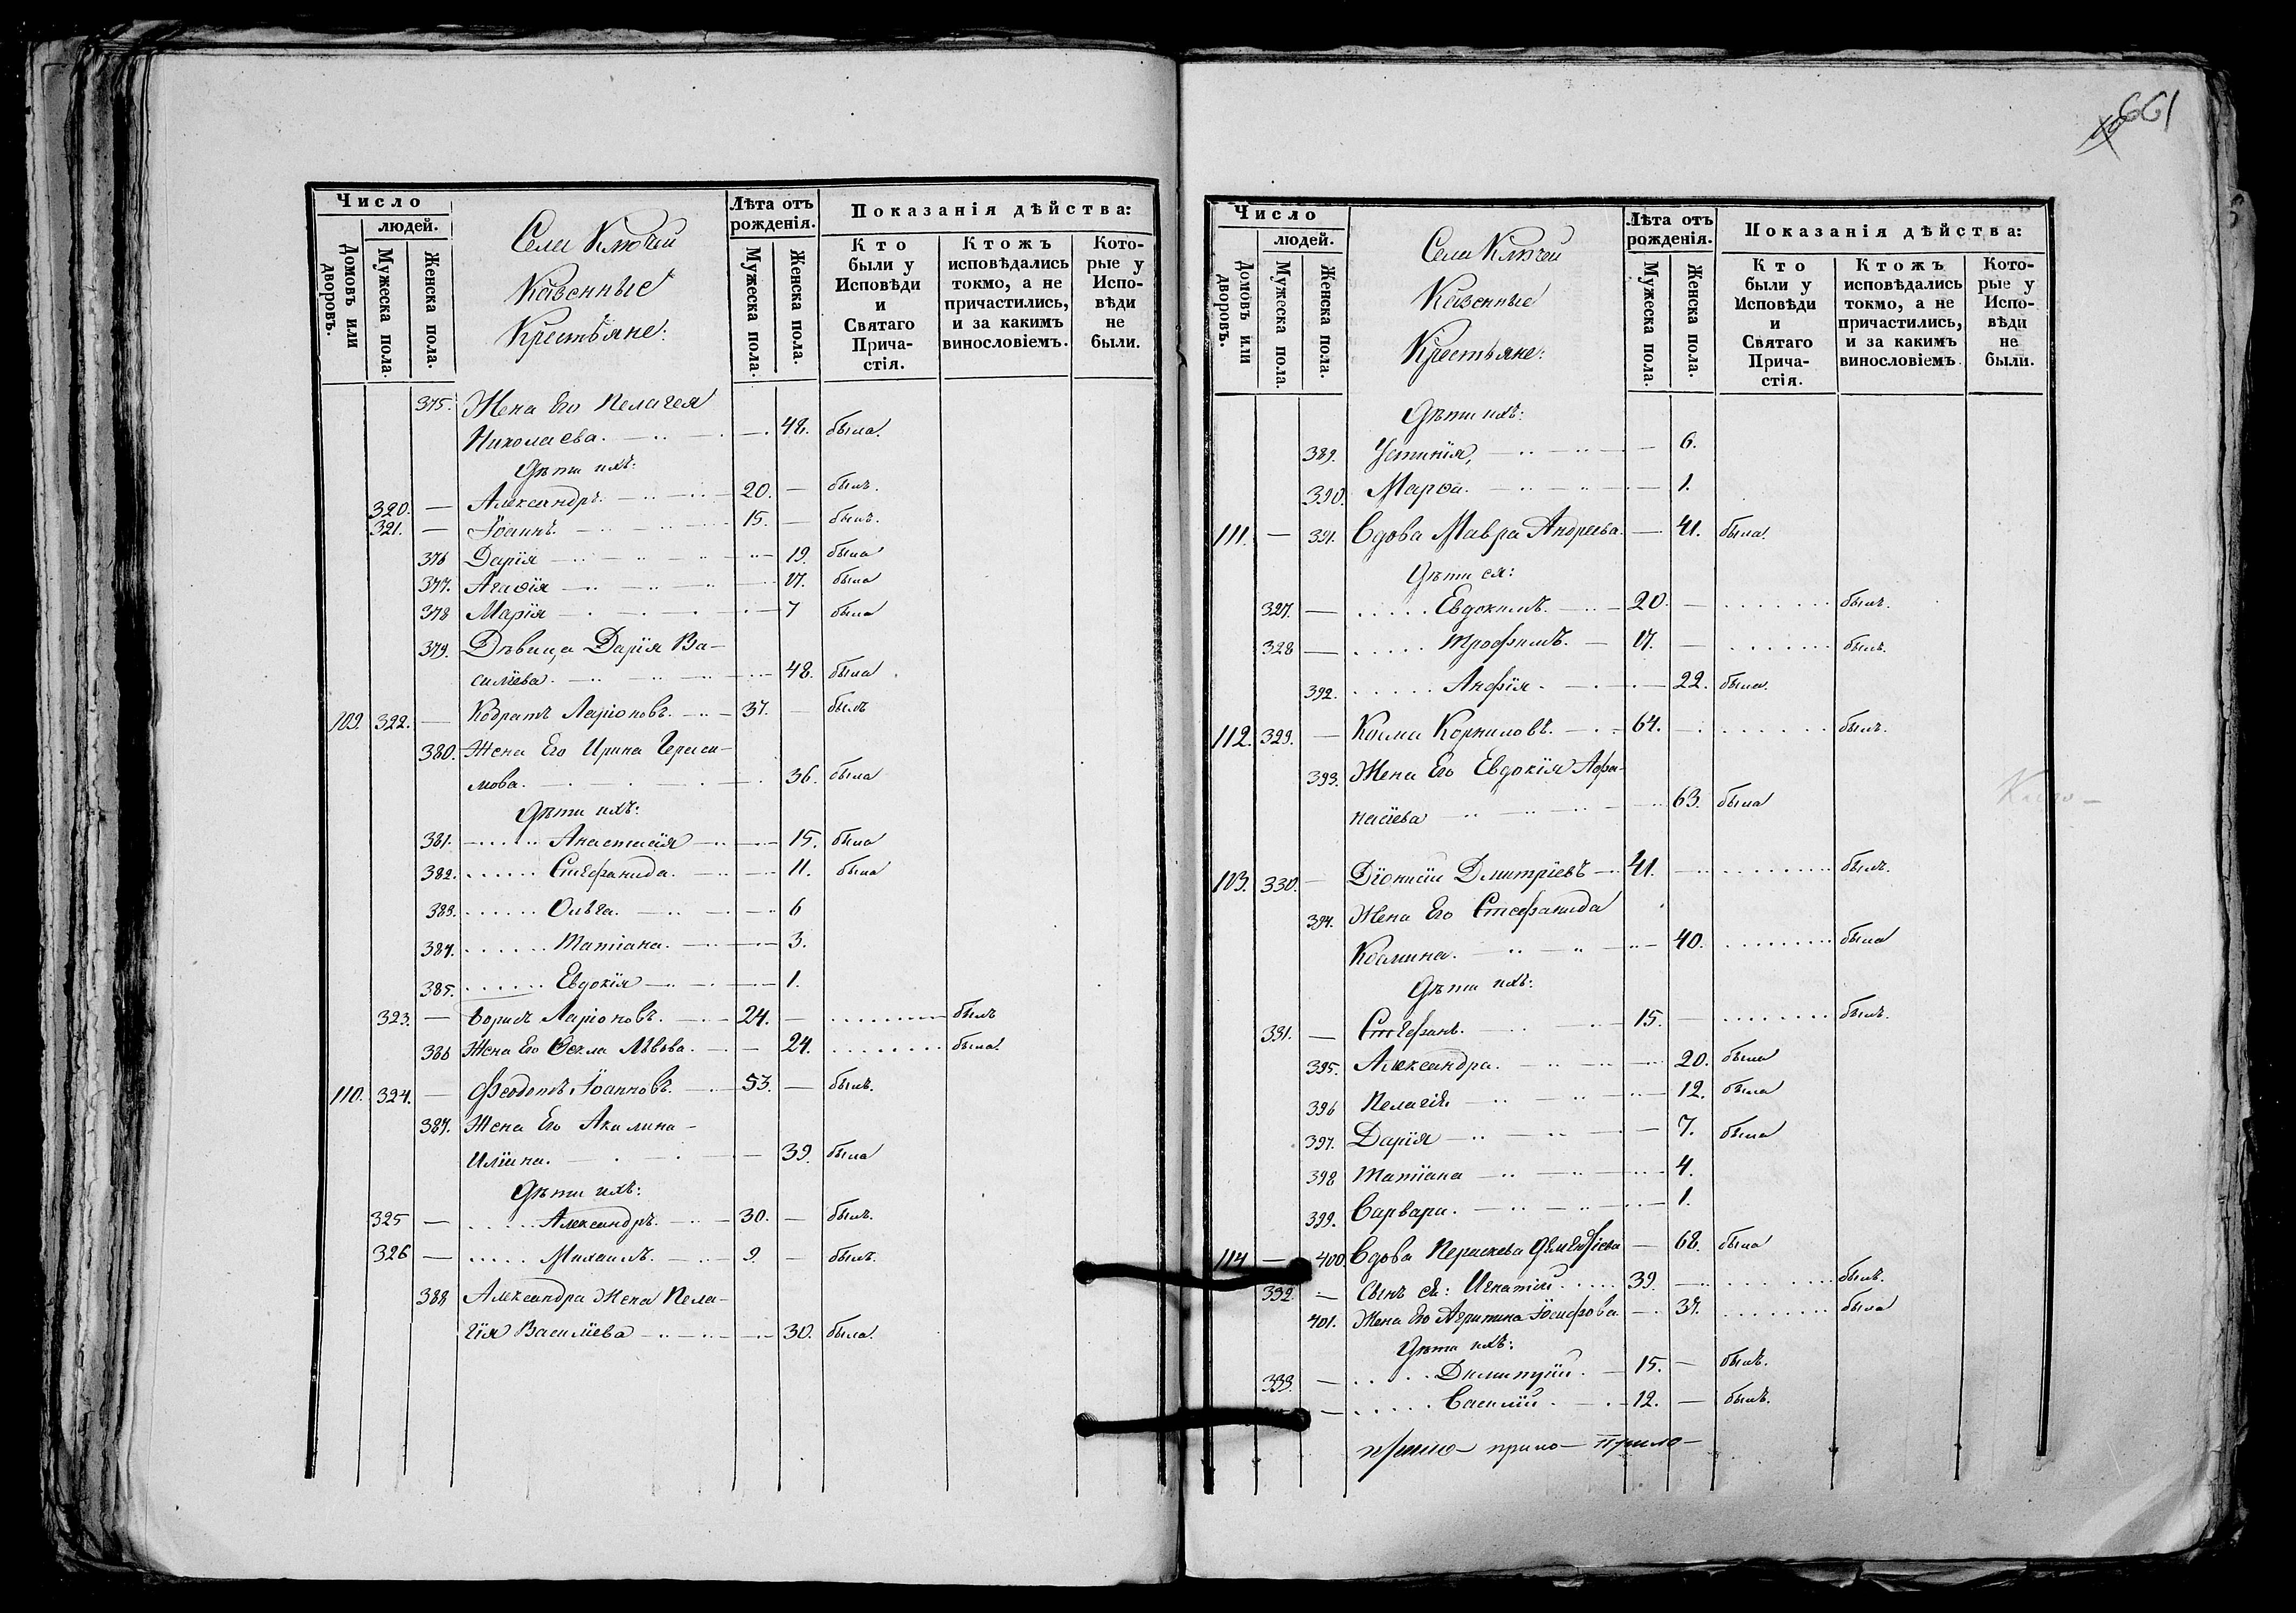 Число
людей.
Домовъ или дворовъ.
Мужеска пола.
Женска пола.
Села Ключей
Казенные
Крестьяне:
Лѣта отъ рожденія.
Мужеска пола.
Женска пола.
Показанія дѣйства:
Кто были у Исповѣди и Святаго Причастія.
Ктожъ исповѣдались токмо, а не причастились, и за какимъ винословіемъ.
Которые у Исповѣди не были.
375. Жена Его Пелагея
Николаева. — 48. была.
Дѣти ихъ:
320. — Александръ. — 20. — былъ.
321. — Іоаннъ. — 15. — былъ.
376 Дарія — 19. была
377. Агаѳія — 17. была
378 Марія — 7 была
379. Дѣвица Дарія Ва-
силіева. — 48. была
109. 322. — Кодратъ Ларіоновъ. — 37. — былъ
380. Жена Его Ирина Гераси-
мова. — 36. была
Дѣти ихъ:
381. Анастасія — 15. была
382. Стефанида. — 11. была
383. Ольга. — 6
384. Татіана. — 3.
385. Евдокія — 1.
323. — Борисъ Ларіоновъ. — 24. — былъ
386 Жена Его Ѳекла Львова. — 24. была.
110. 324. — Феодотъ Іоанновъ. — 53. — былъ.
387. Жена Его Акилина
Иліина. — 39. была
Дѣти ихъ:
325 — Александръ. — 30. — былъ.
326 — Михаилъ. — 9. — былъ.
388 Александра Жена Пела-
гія Василіева — 30. была.
661
Число
людей.
Домовъ или дворовъ.
Мужеска пола.
Женска пола.
Села Ключей
Казенные
Крестьяне:
Лѣта отъ рожденія.
Мужеска пола.
Женска пола.
Показанія дѣйства:
Кто были у Исповѣди и Святаго Причастія.
Ктожъ исповѣдались токмо, а не причастились, и за какимъ винословіемъ.
Которые у Исповѣди не были.
Дѣти ихъ:
389. Устинія, — 6.
390. Марѳа. — 1.
111. — 391. Вдова Мавра Андреева. — 41. была.
Дѣти ея:
327. — Евдокимъ. — 20. — былъ.
328 — Трофимъ. — 17. — былъ.
392. Анфія. — 22. была.
112. 329. — Козма Корниловъ. — 64. — былъ.
393. Жена Его Евдокія Афа-
насіева — 63. была
103. 330. — Діонисій Дмитріевъ — 41. — былъ.
394. Жена Его Стефанида
Козмина. — 40. была
Дѣти ихъ:
331. — Стефанъ. — 15. — былъ.
395. Александра. — 20. была
396 Пелагія — 12. была
397. Дарія — 7. была
398 Татіана — 4.
399. Варвара. — 1.
114 — 400. Вдова Параскева Дементіева — 68. была
332. — Сынъ ея: Игнатій 39. — былъ.
401. Жена Его Агрипина Іосифова — 37. была
Дѣти ихъ:
333. — Димитрій. — 15. — былъ.
— Василій. — 12. — былъ.